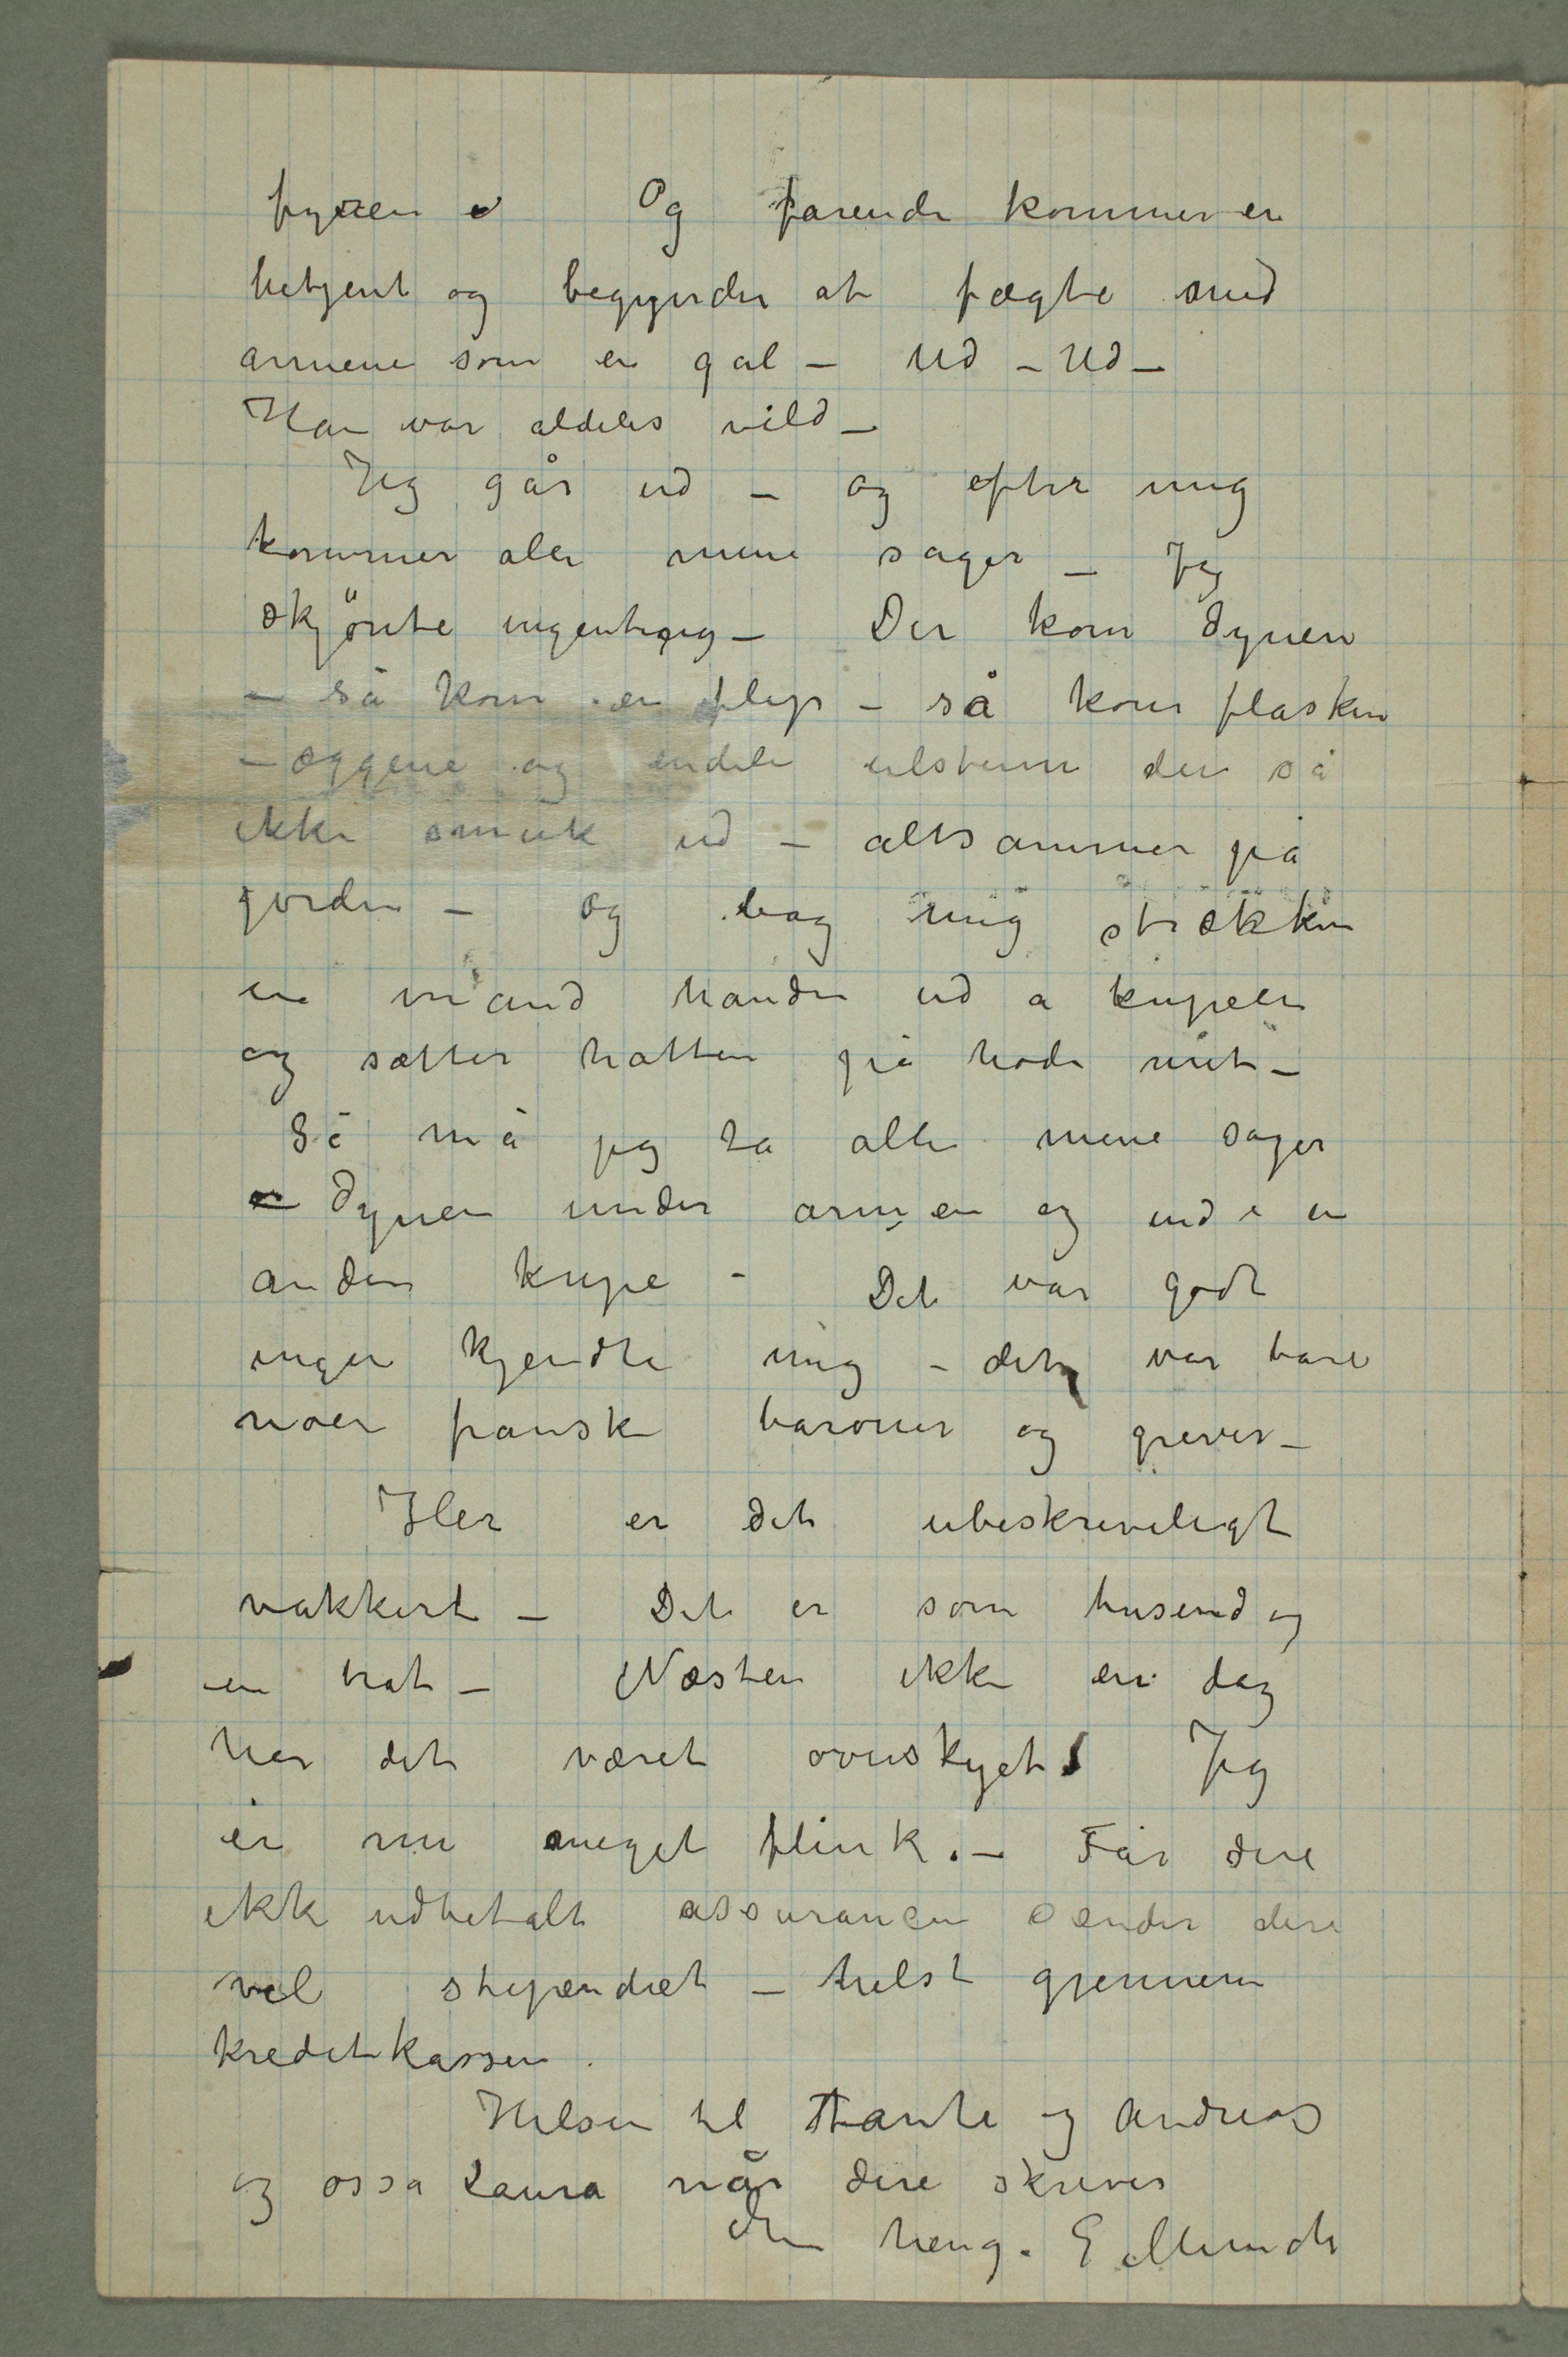 fyren Og farende kommer en
betjent og begynder at fægte med
armene som en gal – Ud – Ud –
Han var aldeles vild –
Jeg går ud – og efter mig
kommer alle mine sager – Jeg
skjönte ingenting – Der kom dynen
– så kom en flip – så kom flasken
– æggene og endele ulstern der så
ikke smuk ud – altsammen på
jorden – og bag mig strækker
en mand hånden ud a kupeen
og sætter hatten på hode mit –
Så må jeg ta alle mine sager
– dynen under armen og ind i en
anden kupe – Det var godt
ingen kjendte mig – det var bare
noen franske baroner og grever –
Her er det ubeskriveligt
vakkert – Det er som tusend og
en nat – Næsten ikke en dag
har det været overskyet Jeg
er nu meget flink. – Får dere
ikke udbetalt assurancen sender dere
vel stipendiet – helst gjennem
kreditkassen.
Hilsen til Tante og Andreas
og osså Laura når dere skriver
Din heng. E Munch